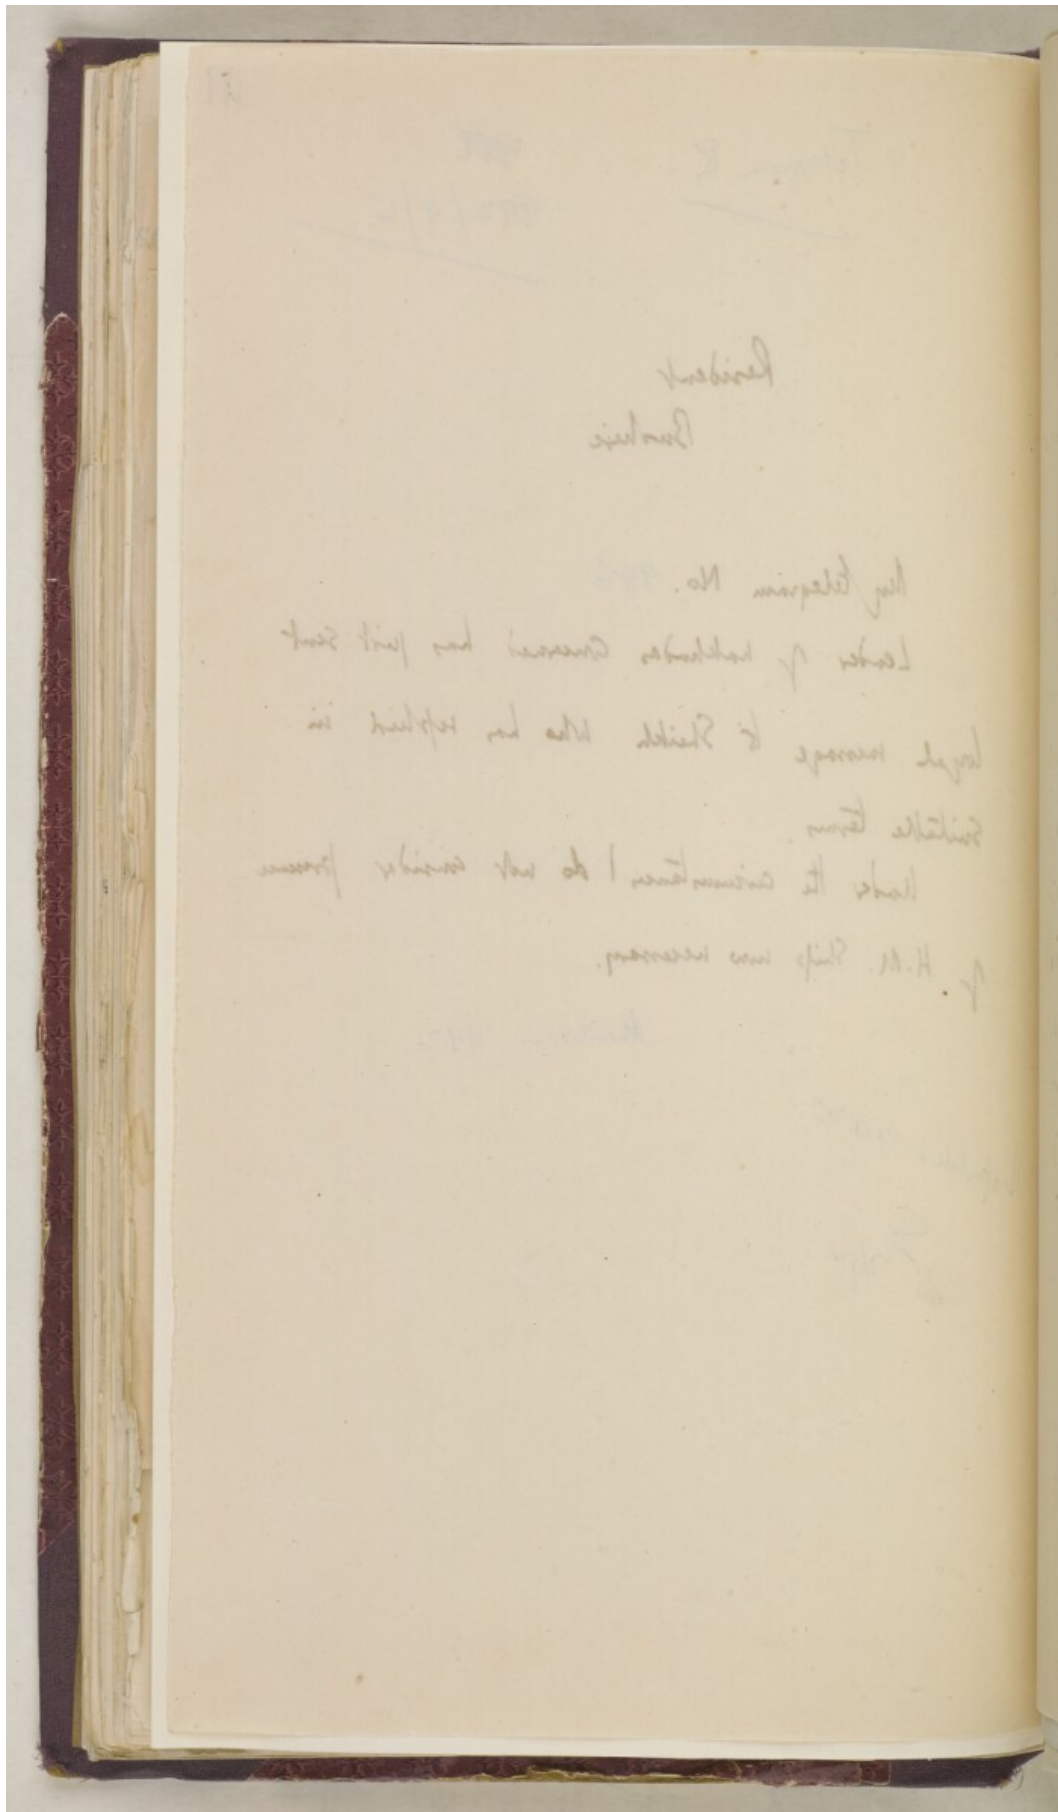 Telegram R
Resident
Bushire
My telegram No.
Leader of nakhudas concerned has just sent
loyal message to Sheikh who has replied in
suitable terms.
Under the circumstances I do not consider presence
of H.M. Ship now necessary.